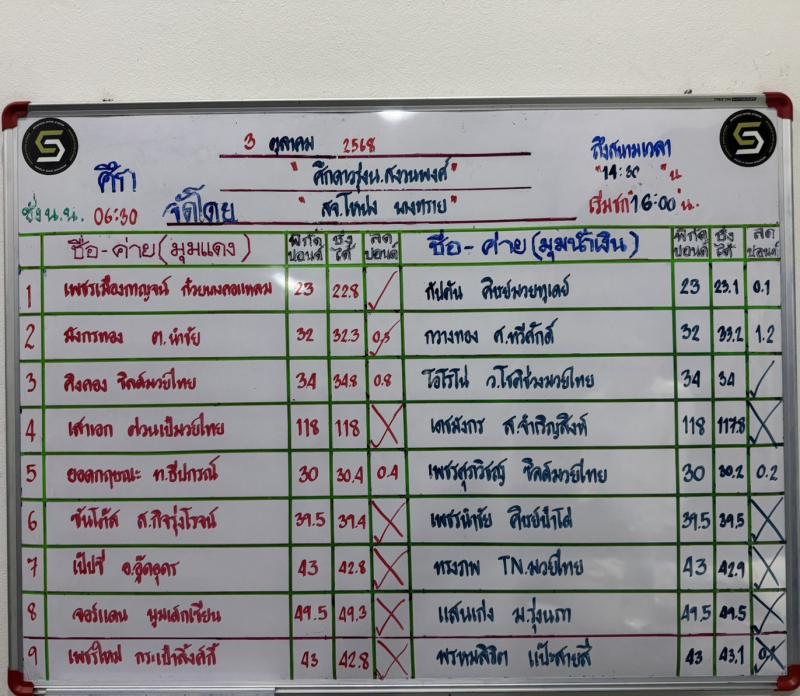 3 ตุลาคม 2568
ถึงสนามเวลา
"14:30" น.
" ศึกดาวรุ่งน.สงวนพงศ์ "
ศึก 1
ชั่ง น.น. 06:30 จัดโดย " สจ.โหน่ง นงทราย " เริ่มชก 16:00 น.
ชื่อ - ค่าย (มุมแดง) พิกัด ปอนด์ ชั่งได้ ลด ปอนด์ ชื่อ - ค่าย (มุมน้ำเงิน) พิกัด ปอนด์ ชั่งได้ ลด ปอนด์
1 เพชรเมืองกาญจน์ 23 22.8 ✓ กัปตัน ศิษย์มวยทูเดย์ 23 23.1 0.1
2 มังกรทอง ต.นำชัย 32 32.3 0.3 กวางทอง ศ.ทวีศักดิ์ 32 33.2 1.2
3 คิงคอง ชิลด์มวยไทย 34 34.8 0.8 ไอโรโน่ ว.โชคช่วยมวยไทย 34 34 ✓
4 เสาเอก ศวนเป๋มวยไทย 118 118 X เดชมังกร ส.จำเริญสิงห์ 118 117.8 X
5 ยอดกฤษณะ ท.ธีปกรณ์ 30 30.4 0.4 เพชรสุภวิชญ์ ชิลด์มวยไทย 30 30.2 0.2
6 ซันโต๊ส ส.กิจรุ่งโรจน์ 39.5 39.4 X เพชรนำชัย ศิษย์ป๋าโด่ 39.5 39.5 X
7 เป๊ปซี่ อ.อู๊ดอุดร 43 42.8 X ทรงภพ TN.มวยไทย 43 42.9 X
8 จอร์แดน พูมเด็กเซียน 49.5 49.3 X แสนเก่ง ม.รุ่งนภา 49.5 49.5 X
9 เพชรใหม่ กระเป๋าสิงห์ศักดิ์ 43 42.8 X พรหมลิขิต แป๊ะสายสี่ 43 43.1 0.1